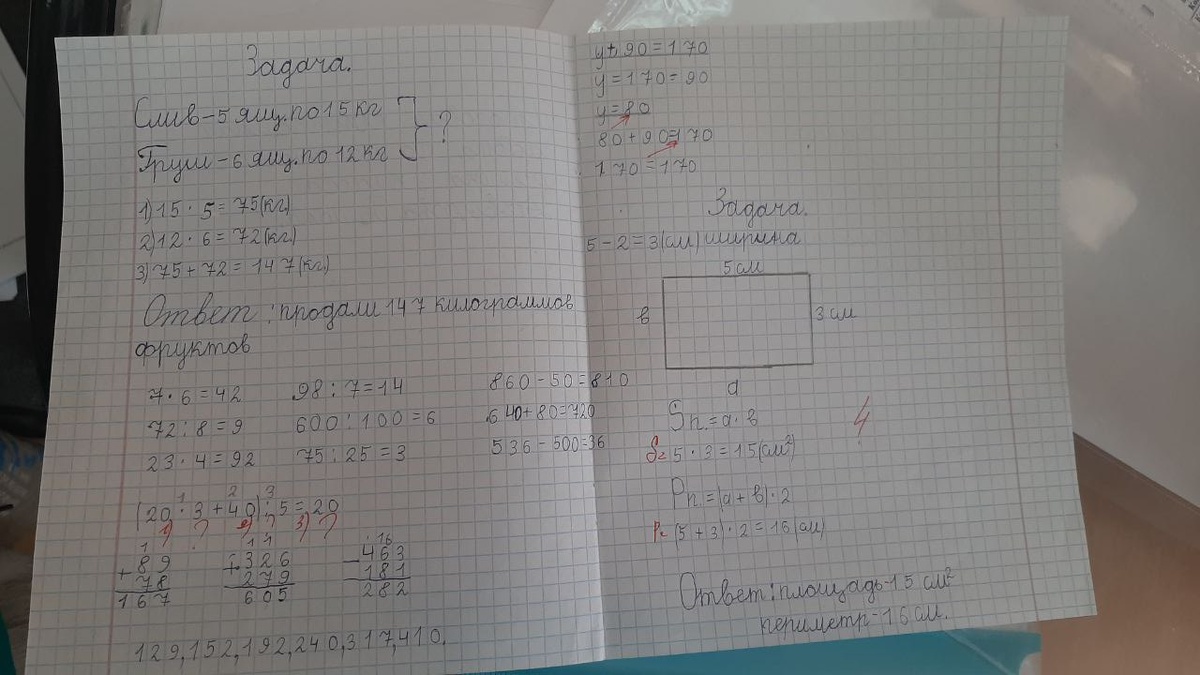 Задача.
Слив-5 ящ. по 15 кг
Груш-6 ящ. по 12 кг
} ?
1) 15 · 5 = 75 (кг)
2) 12 · 6 = 72 (кг)
3) 75 + 72 = 147 (кг)
Ответ: продали 147 килограммов
фруктов
7 · 6 = 42 98 : 7 = 14 860 - 50 = 810
72 : 8 = 9 600 : 100 = 6 640 + 80 = 720
23 · 4 = 92 75 : 25 = 3 536 - 500 = 36
1 2 3
(20 · 3 + 40) : 5 = 20
1) ? 2) ? 3) ?
1 11 . 16
+ 89 + 326 - 463
78 279 181
167 605 282
129, 152, 192, 240, 317, 410.
y + 90 = 170
y = 170 = 90
y = 80
80 + 90 = 170
170 = 170
Задача.
5 - 2 = 3 (см) ширина
5 см
в 3 см
a
Sп. = a · в
4
S= 5 · 3 = 15 (см²)
Pп. = (a + в) · 2
P= (5 + 3) · 2 = 16 (см)
Ответ: площадь-15 см²
периметр-16 см.